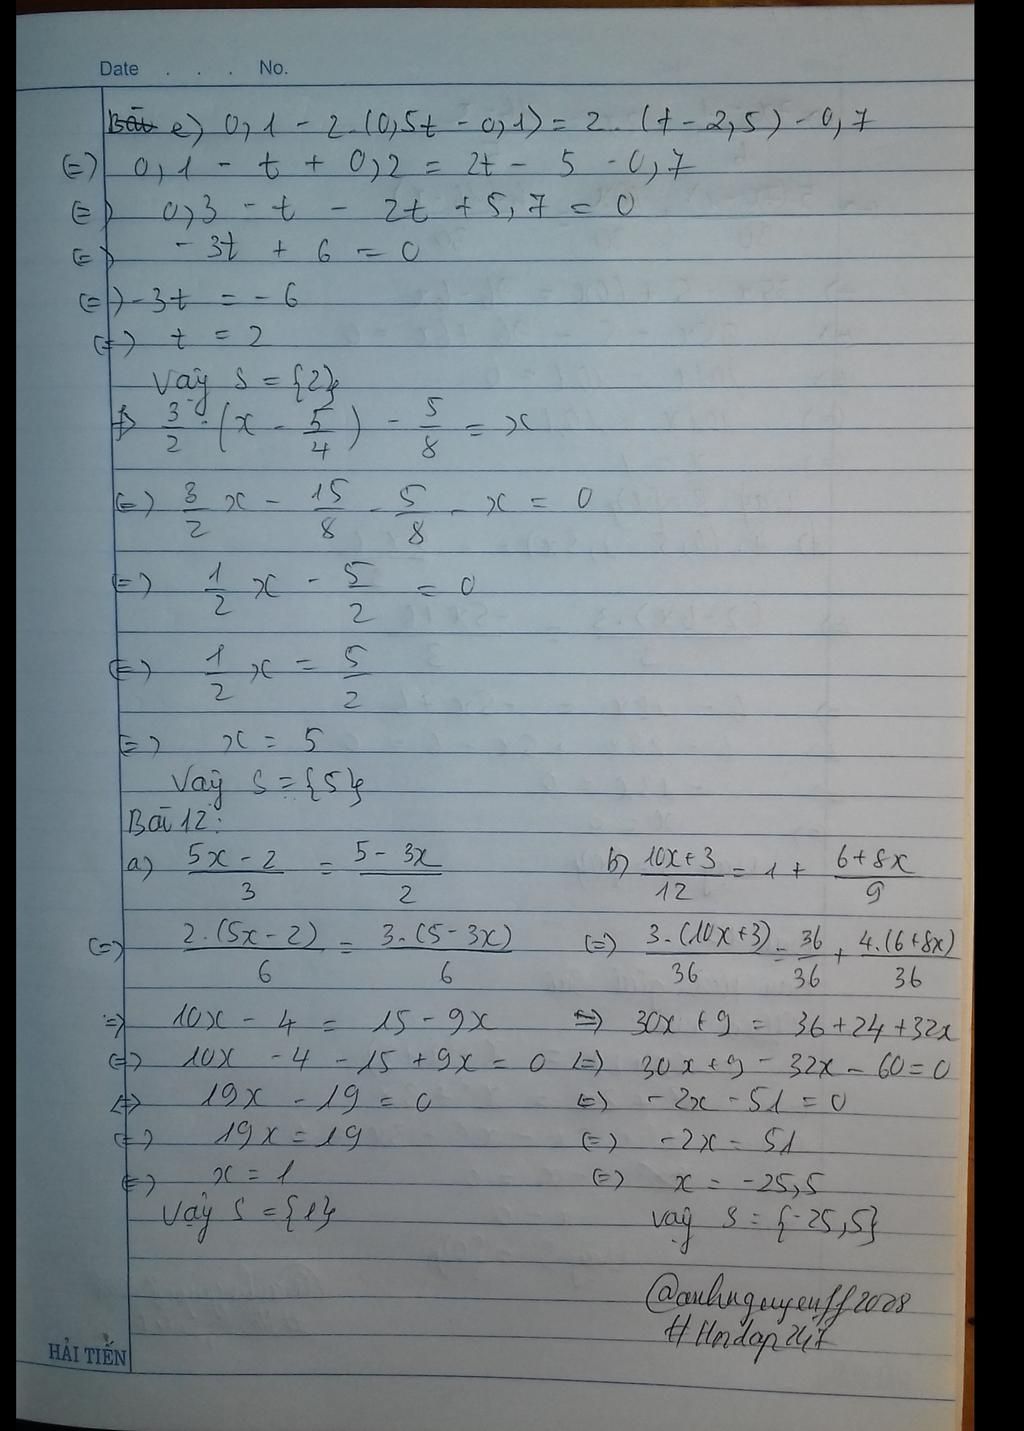 Date . . . No.
e) 0,1 - 2.(0,5t - 0,1) = 2.(t - 2,5) - 0,7
(=) 0,1 - t + 0,2 = 2t - 5 - 0,7
(=) 0,3 - t - 2t + 5,7 = 0
(=) -3t + 6 = 0
(=) -3t = -6
(=) t = 2
Vậy S = {2}
f) 3/2 . (x - 5/4) - 5/8 = x
(=) 3/2 x - 15/8 - 5/8 - x = 0
(=) 1/2 x - 5/2 = 0
(=) 1/2 x = 5/2
(=) x = 5
Vậy S = {5}
Bài 12:
a) (5x - 2)/3 = (5 - 3x)/2
(=) 2.(5x - 2)/6 = 3.(5 - 3x)/6
=) 10x - 4 = 15 - 9x
(=) 10x - 4 - 15 + 9x = 0
(=) 19x - 19 = 0
(=) 19x = 19
(=) x = 1
Vậy S = {1}
b) (10x + 3)/12 = 1 + (6 + 8x)/9
(=) 3.(10x + 3)/36 = 36/36 + 4.(6 + 8x)/36
=) 30x + 9 = 36 + 24 + 32x
(=) 30x + 9 - 32x - 60 = 0
(=) -2x - 51 = 0
(=) -2x = 51
(=) x = -25,5
Vậy S = {-25,5}
@anhnguyenff2008
#Hoidap247
HẢI TIẾN